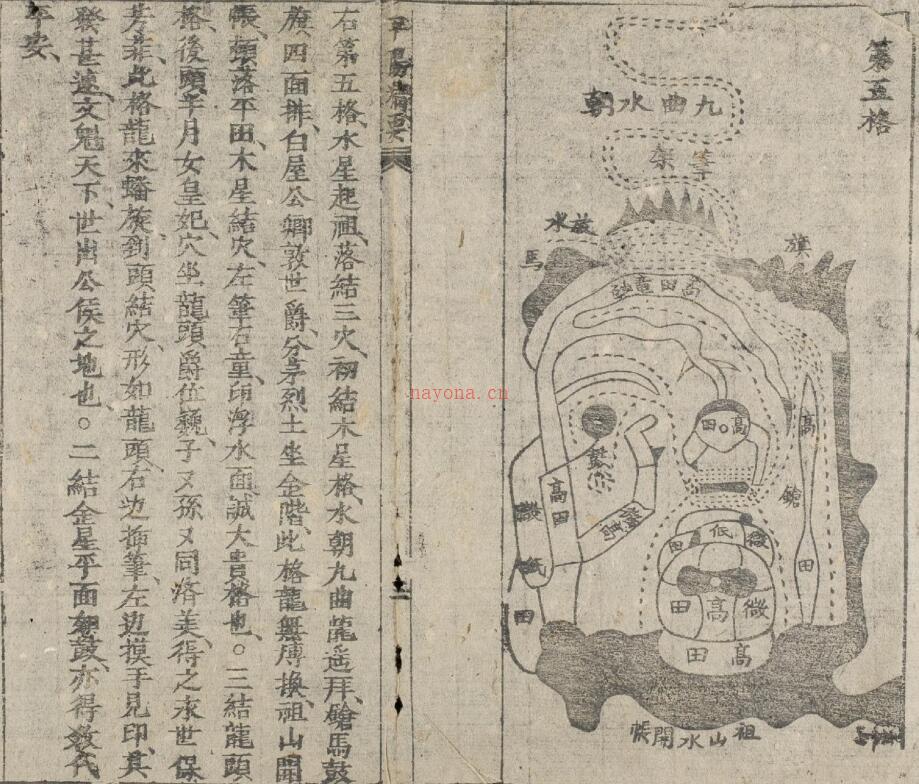 第五格
九曲水朝
旗
水
馬
高田
高
鎗
田
高田
微
低
田
微
高
田
高田
祖山水開帳
nayona.cn
平陽精要
右第五格水星起祖落結三穴初結木星格水朝九曲龍遥拜鎗馬鼓
旗四面排白屋公卿敦世爵分茅烈土坐金階此格龍無博換祖山開
帳頓落平田木星結穴左筆右童印浮水面誠大貴格也○三結龍頭
格後頭半月女皇妃穴坐龍頭爵位巍子又孫又同落美得之永世保
芳菲此格龍來蟠旋到頭結穴形如龍頭右边插筆左边摸手見印其
發甚速文魁天下世出公侯之地也○二結金星平面如鼓亦得数代
平安